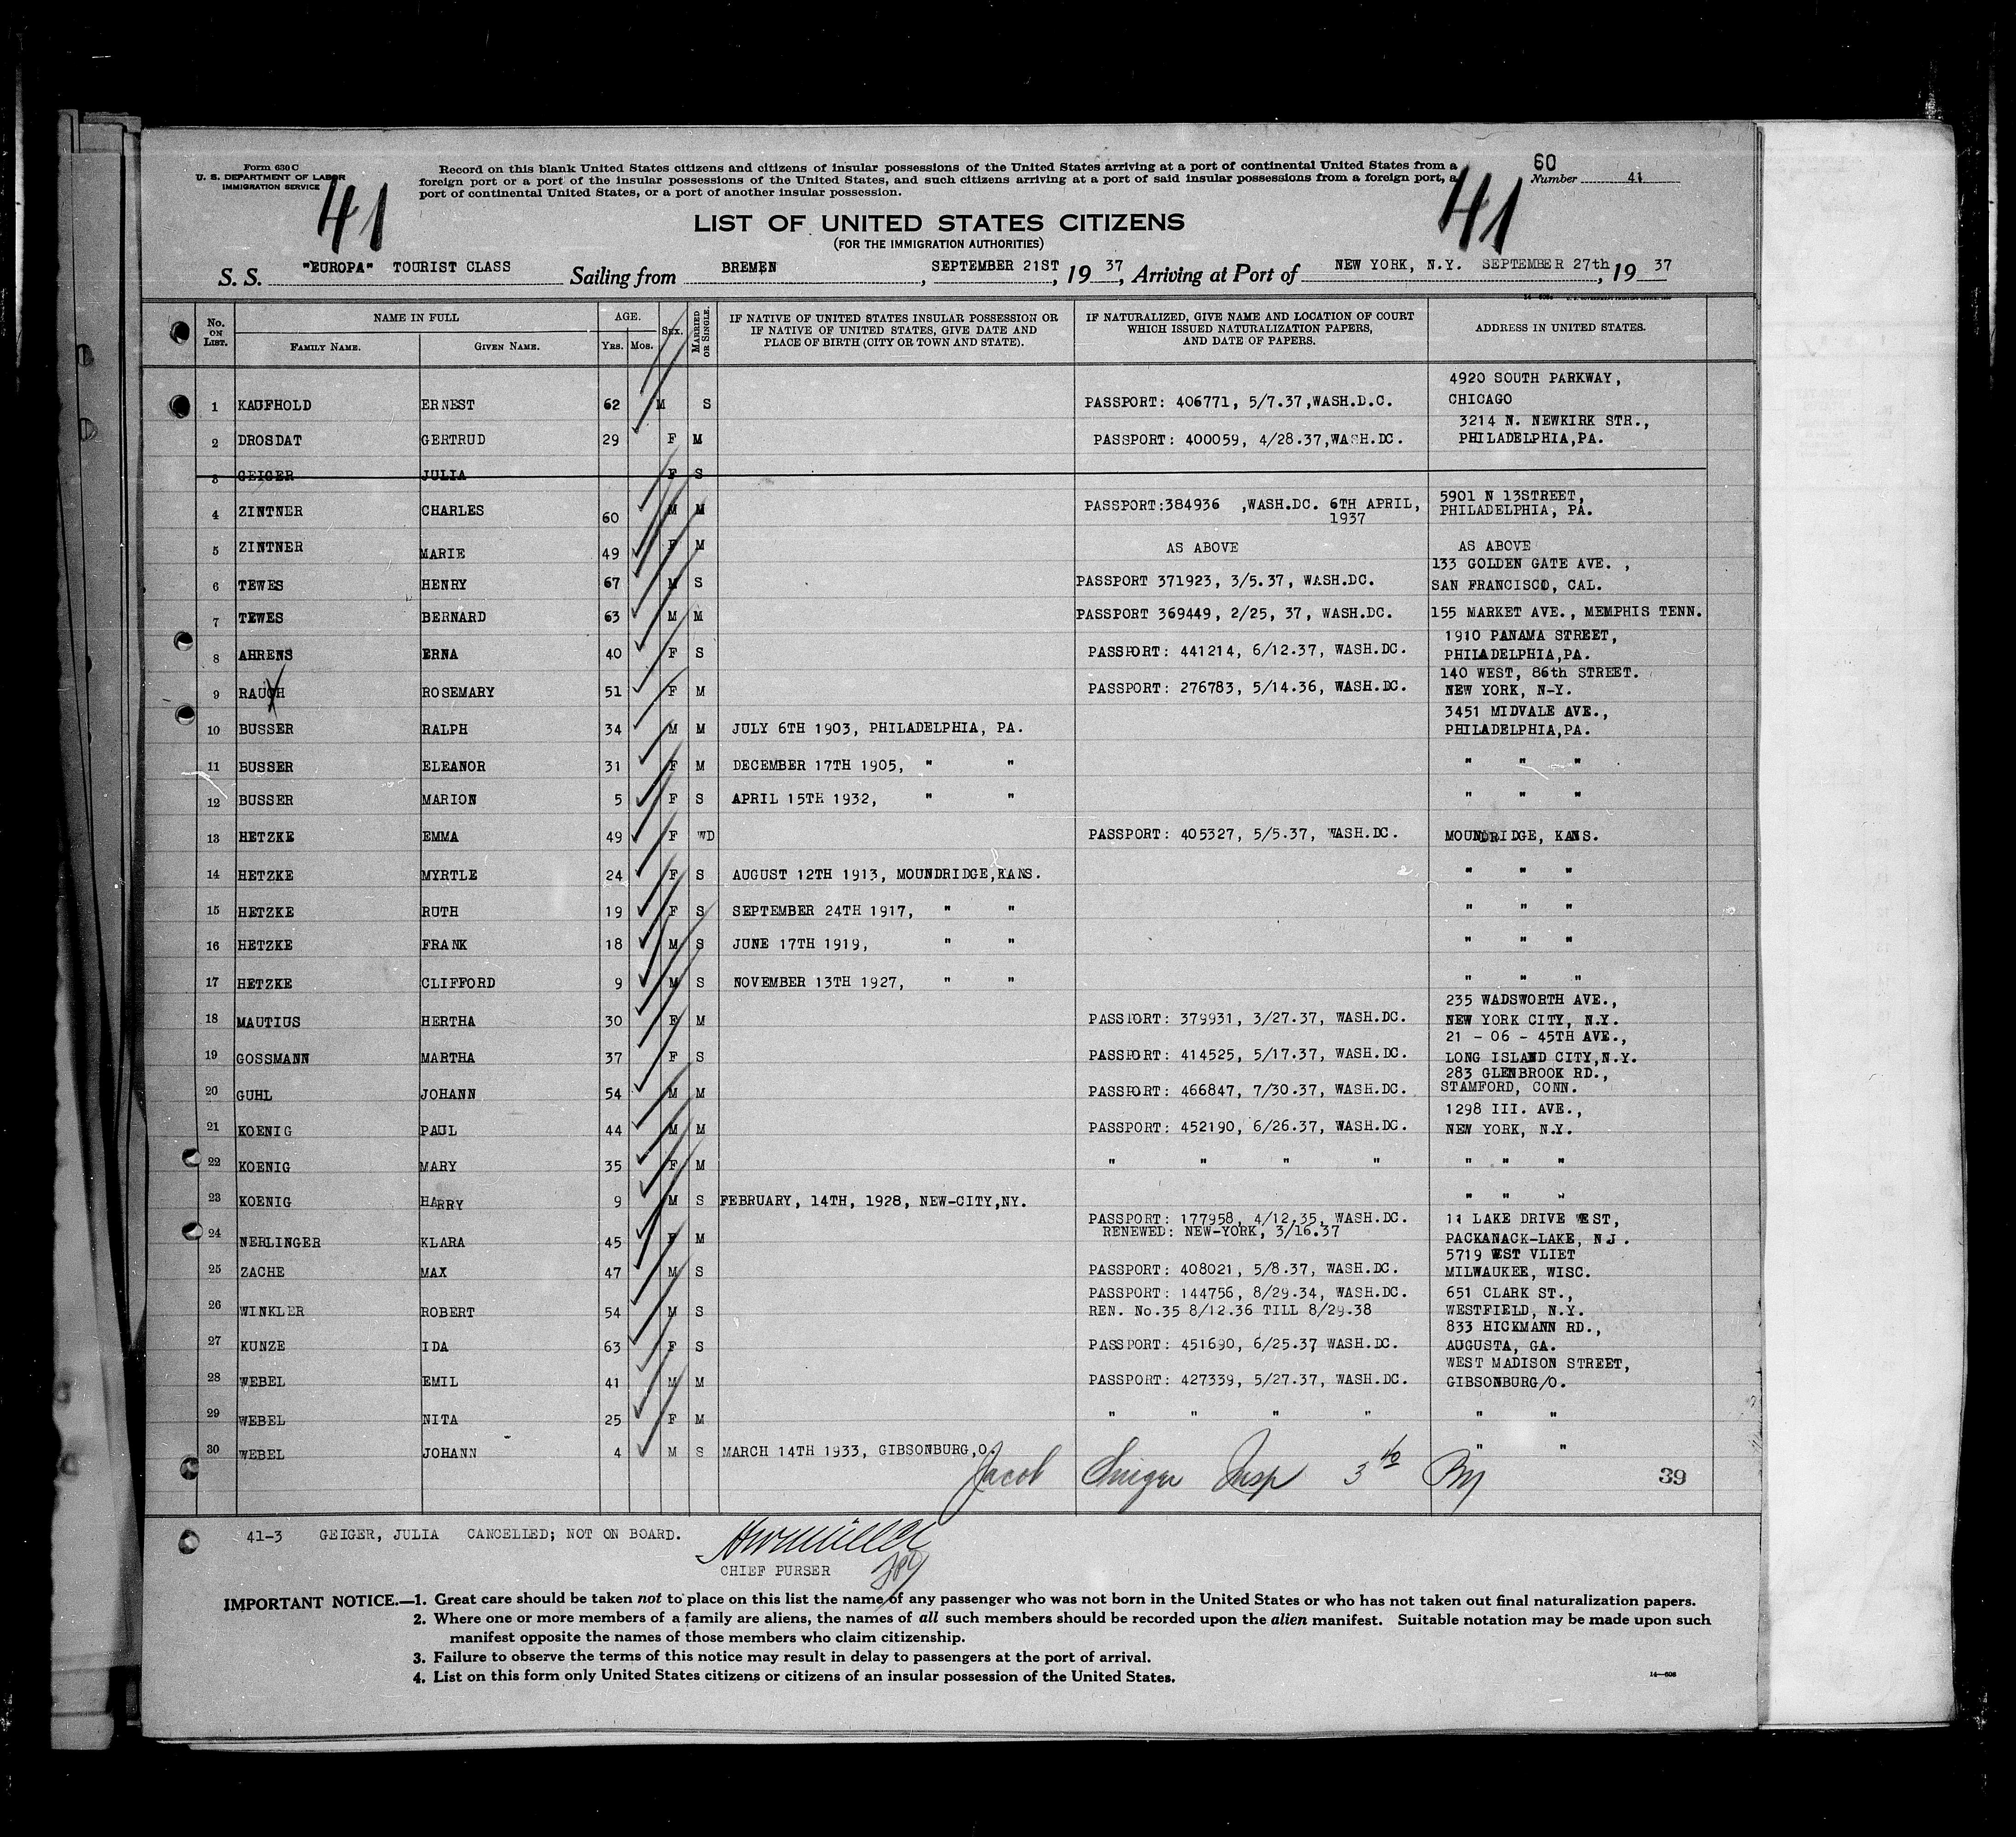 Form 630 C
U. S. DEPARTMENT OF LABOR
IMMIGRATION SERVICE
41
Record on this blank United States citizens and citizens of insular possessions of the United States arriving at a port of continental United States from a
foreign port or a port of the insular possessions of the United States, and such citizens arriving at a port of said insular possessions from a foreign port, a
port of continental United States, or a port of another insular possession.
60
Number 41
41
LIST OF UNITED STATES CITIZENS
(FOR THE IMMIGRATION AUTHORITIES)
S. S. "EUROPA" TOURIST CLASS Sailing from BREMEN, SEPTEMBER 21ST, 19 37, Arriving at Port of NEW YORK, N.Y. SEPTEMBER 27th, 19 37
No. ON LIST. NAME IN FULL FAMILY NAME. GIVEN NAME. AGE. YRS. MOS. SEX. MARRIED OR SINGLE. IF NATIVE OF UNITED STATES INSULAR POSSESSION OR IF NATIVE OF UNITED STATES, GIVE DATE AND PLACE OF BIRTH (CITY OR TOWN AND STATE). IF NATURALIZED, GIVE NAME AND LOCATION OF COURT WHICH ISSUED NATURALIZATION PAPERS, AND DATE OF PAPERS. ADDRESS IN UNITED STATES.
1 KAUFHOLD ERNEST 62 M S PASSPORT: 406771, 5/7.37,WASH.D.C. 4920 SOUTH PARKWAY, CHICAGO
2 DROSDAT GERTRUD 29 F M PASSPORT: 400059, 4/28.37,WASH.DC. 3214 N. NEWKIRK STR., PHILADELPHIA,PA.
3 GEIGER JULIA F S
4 ZINTNER CHARLES 60 M M PASSPORT:384936 ,WASH.DC. 6TH APRIL, 1937 5901 N 13STREET, PHILADELPHIA, PA.
5 ZINTNER MARIE 49 F M AS ABOVE AS ABOVE
6 TEWES HENRY 67 M S PASSPORT 371923, 3/5.37, WASH.DC. 133 GOLDEN GATE AVE. , SAN FRANCISCO, CAL.
7 TEWES BERNARD 63 M M PASSPORT 369449, 2/25, 37, WASH.DC. 155 MARKET AVE., MEMPHIS TENN.
8 AHRENS ERNA 40 F S PASSPORT: 441214, 6/12.37, WASH.DC. 1910 PANAMA STREET, PHILADELPHIA,PA.
9 RAUCH ROSEMARY 51 F M PASSPORT: 276783, 5/14.36, WASH.DC. 140 WEST, 86th STREET. NEW YORK, N-Y.
10 BUSSER RALPH 34 M M JULY 6TH 1903, PHILADELPHIA, PA. 3451 MIDVALE AVE., PHILADELPHIA,PA.
11 BUSSER ELEANOR 31 F M DECEMBER 17TH 1905, " " " " "
12 BUSSER MARION 5 F S APRIL 15TH 1932, " " " " "
13 HETZKE EMMA 49 F WD PASSPORT: 405327, 5/5.37, WASH.DC. MOUNDRIDGE, KANS.
14 HETZKE MYRTLE 24 F S AUGUST 12TH 1913, MOUNDRIDGE,KANS. " " "
15 HETZKE RUTH 19 F S SEPTEMBER 24TH 1917, " " " " "
16 HETZKE FRANK 18 M S JUNE 17TH 1919, " " " " "
17 HETZKE CLIFFORD 9 M S NOVEMBER 13TH 1927, " " " " "
18 MAUTIUS HERTHA 30 F M PASSPORT: 379931, 3/27.37, WASH.DC. 235 WADSWORTH AVE., NEW YORK CITY, N.Y.
19 GOSSMANN MARTHA 37 F S PASSPORT: 414525, 5/17.37, WASH.DC. 21 - 06 - 45TH AVE., LONG ISLAND CITY,N.Y.
20 GUHL JOHANN 54 M M PASSPORT: 466847, 7/30.37, WASH.DC. 283 GLENBROOK RD., STAMFORD, CONN.
21 KOENIG PAUL 44 M M PASSPORT: 452190, 6/26.37, WASH.DC. 1298 III. AVE., NEW YORK, N.Y.
22 KOENIG MARY 35 F M " " " " " " "
23 KOENIG HARRY 9 M S FEBRUARY, 14TH, 1928, NEW-CITY,NY. " " "
24 NERLINGER KLARA 45 F M PASSPORT: 177958, 4/12.35, WASH.DC. RENEWED: NEW-YORK, 3/16.37 11 LAKE DRIVE WEST, PACKANACK-LAKE, N.J.
25 ZACHE MAX 47 M S PASSPORT: 408021, 5/8.37, WASH.DC. 5719 WEST VLIET MILWAUKEE, WISC.
26 WINKLER ROBERT 54 M S PASSPORT: 144756, 8/29.34, WASH.DC. REN. No.35 8/12.36 TILL 8/29.38 651 CLARK ST., WESTFIELD, N.Y.
27 KUNZE IDA 63 F S PASSPORT: 451690, 6/25.37 WASH.DC. 833 HICKMANN RD., AUGUSTA, GA.
28 WEBEL EMIL 41 M M PASSPORT: 427339, 5/27.37, WASH.DC. WEST MADISON STREET, GIBSONBURG/O.
29 WEBEL NITA 25 F M " " " " " "
30 WEBEL JOHANN 4 M S MARCH 14TH 1933, GIBSONBURG,O. " "
Jacob Insp 3
39
41-3 GEIGER, JULIA CANCELLED; NOT ON BOARD.
CHIEF PURSER
IMPORTANT NOTICE.—1. Great care should be taken not to place on this list the name of any passenger who was not born in the United States or who has not taken out final naturalization papers.
2. Where one or more members of a family are aliens, the names of all such members should be recorded upon the alien manifest. Suitable notation may be made upon such
manifest opposite the names of those members who claim citizenship.
3. Failure to observe the terms of this notice may result in delay to passengers at the port of arrival.
4. List on this form only United States citizens or citizens of an insular possession of the United States.
14—608